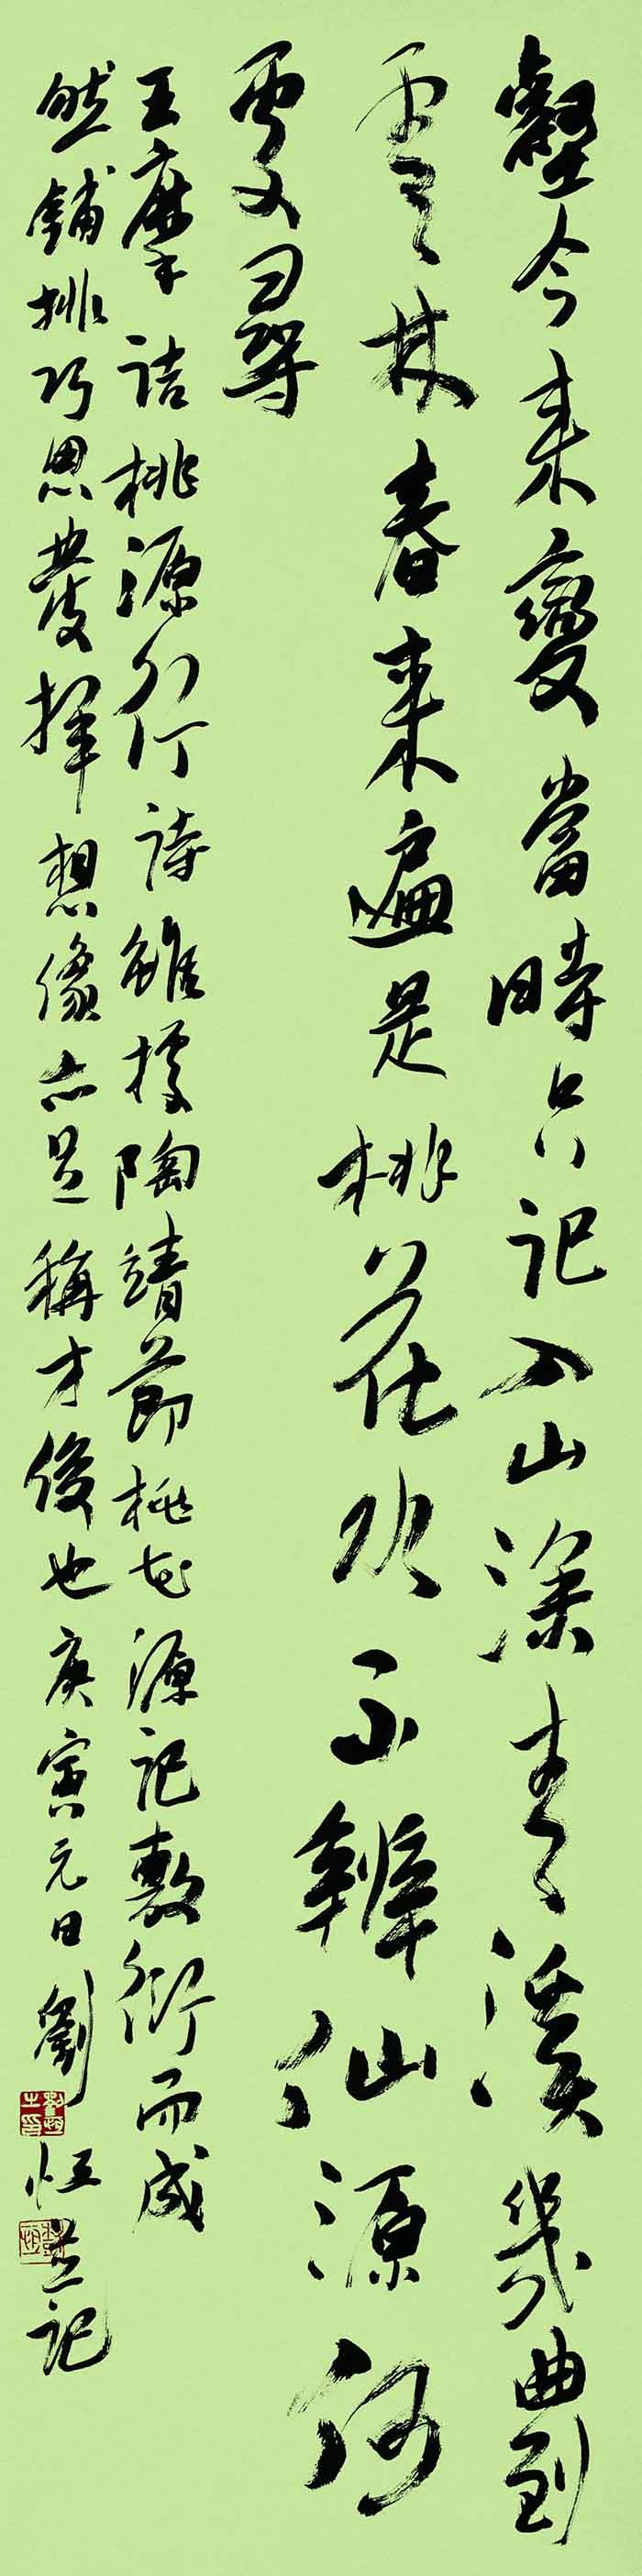 壑今来變當時只記入山深青溪幾曲到
雲林春来遍是桃花水不辨仙源何
處尋
王摩詰桃源行詩雖據陶靖節桃花源記敷衍而成
然鋪排巧思發揮想像亦足稱才俊也庚寅元日劉恒並記